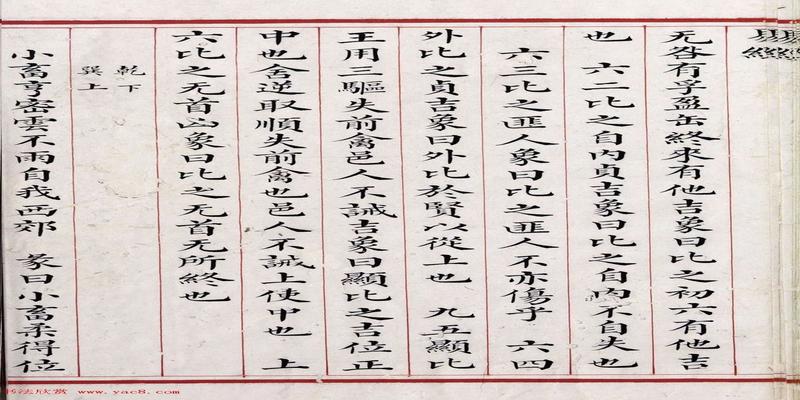 易經
无咎有孚盈缶終來有他吉象曰比之初六有他吉
也 六二比之自內貞吉象曰比之自內不自失也
六三比之匪人象曰比之匪人不亦傷乎 六四
外比之貞吉象曰外比於賢以從上也 九五顯比
王用三驅失前禽邑人不誡吉象曰顯比之吉位正
中也舍逆取順失前禽也邑人不誡上使中也 上
六比之无首凶象曰比之无首无所終也
乾下
巽上
小畜亨密雲不雨自我西郊 彖曰小畜柔得位
书法欣赏 www.yac8.com